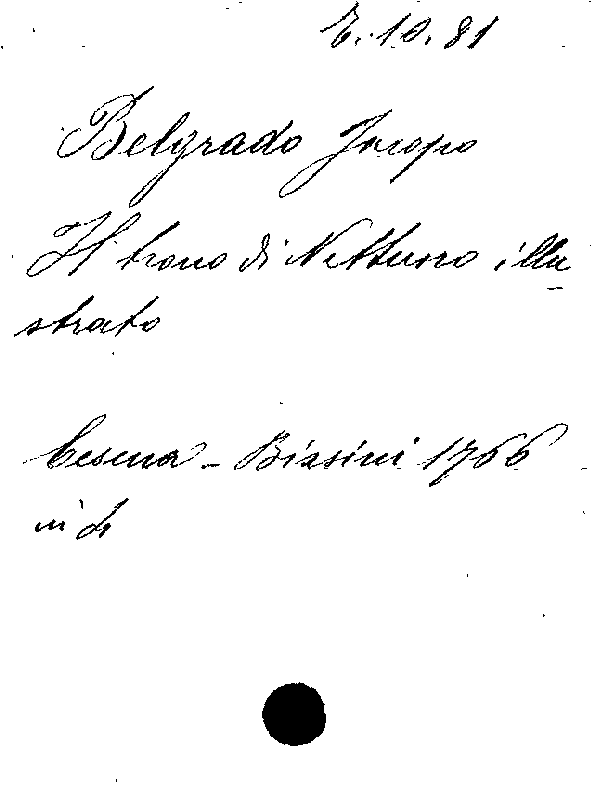 E. 10. 81
Belgrado Jacopo
Il trono di Nettuno illu
strato
Cesena - Biasini 1766
in 4